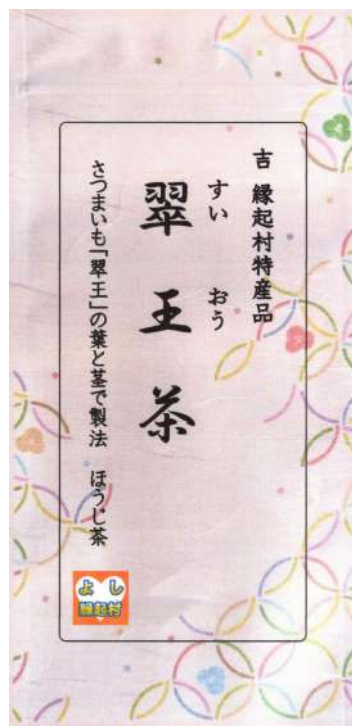 吉 縁起村特産品
すい おう
翠王茶
さつまいも「翠王」の葉と茎で製法 ほうじ茶
よし
縁起村